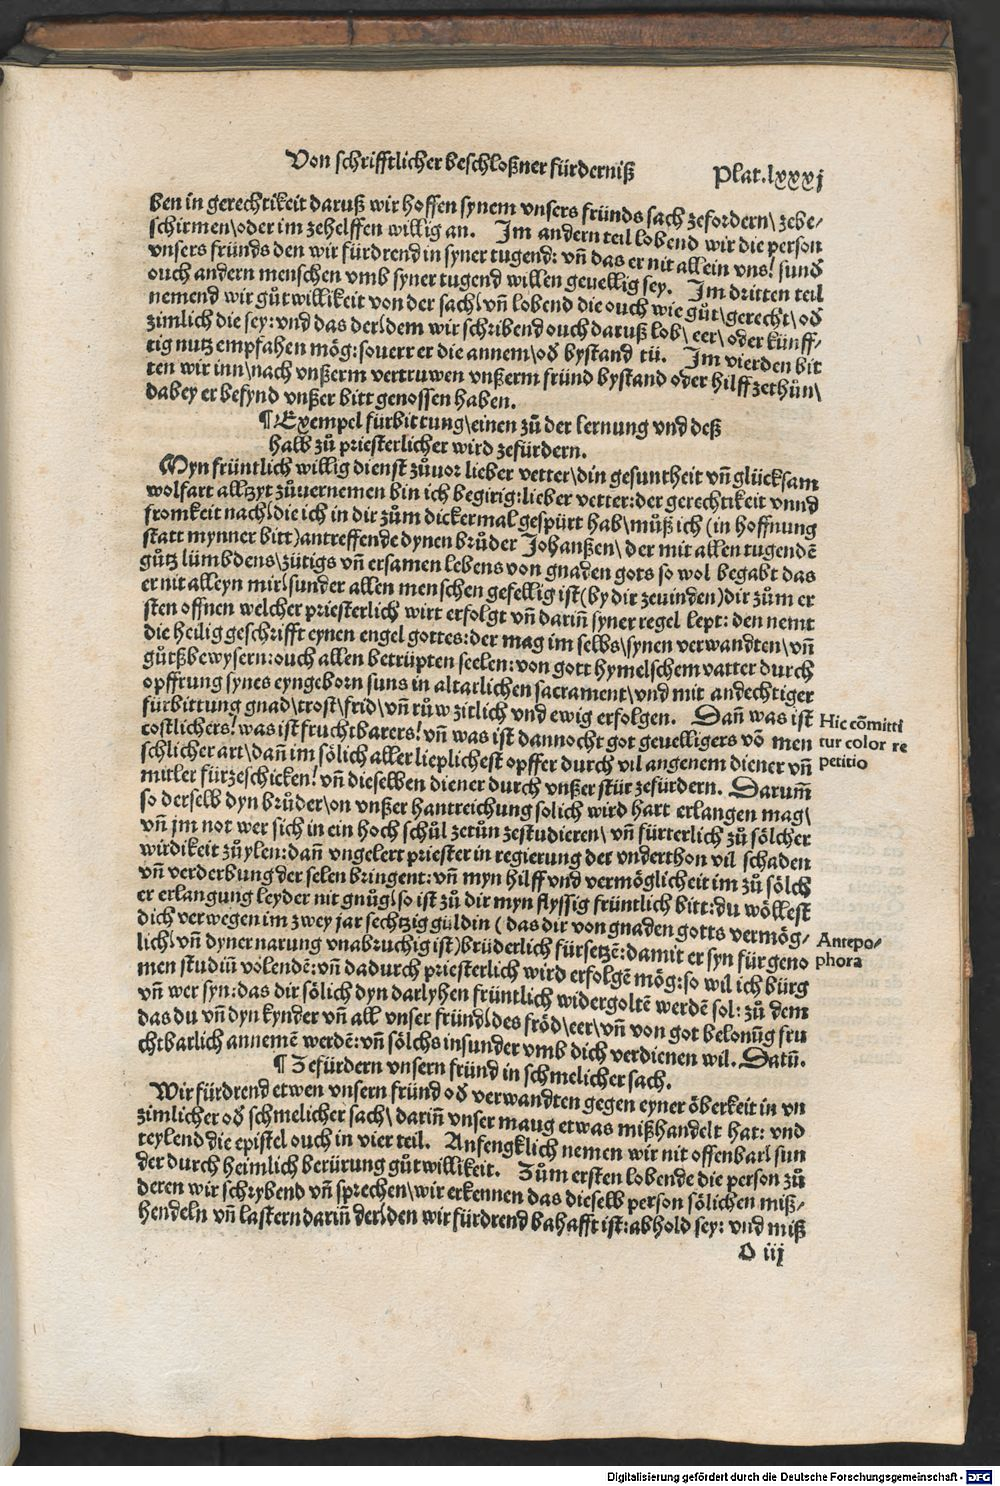 Von schrifftlicher beschloßner fürderniß
Plat. lxxxj
ben in gerechtikeit daruß wir hoffen synem vnsers fründs sach zefordern\ zebe-
schirmen\ oder im zehelffen willig an. Im andern teil lobend wir die person
vnsers fründs den wir fürdrend in syner tugend: vñ das er nit allein vns! sund̕
ouch andern menschen vmb syner tugend willen geuellig sey. Im dritten teil
nemend wir gůtwillikeit von der sach\ vñ lobend die ouch wie gůt\ gerecht\ od̕
zimlich die sey: vnd das der\ dem wir schribend ouch daruß lob\ eer\ oder künff-
tig nutz empfahen mög: souerr er die annem\ od̕ bystand tü. Im vierden bit
ten wir inn\ nach vnßerm vertruwen vnßerm fründ bystand oder hilff zethůn\
dabey er befynd vnßer bitt genossen haben.
¶ Exempel fürbittung\ einen zů der lernung vnd deß
halb zů priesterlicher wird zefürdern.
Myn früntlich willig dienst zůuor lieber vetter\ din gesuntheit vñ glücksam
wolfart allzyt zůuernemen bin ich begirig: lieber vetter: der gerechtikeit vnnd
fromkeit nach\ die ich in dir zům dickermal gespürt hab\ můß ich (in hoffnung
statt mynner bitt) antreffende dynen brůder Johanßen\ der mit allen tugendẽ
gůtz lümbdens\ zütigs vñ ersamen lebens von gnaden gots so wol begabt das
er nit alleyn mir\ sunder allen menschen gefellig ist (by dir zeuinden) dir zům er
sten offnen welcher priesterlich wirt erfolgt vñ dariñ syner regel lept: den nemt
die heilig geschrifft eynen engel gottes: der mag im selbs\ synen verwandten\ vñ
gůtßbewysern: ouch allen betrüpten seelen: von gott hymelschem vatter durch
opffrung synes eyngeborn suns in altarlichen sacrament\ vnd mit andechtiger
fürbittung gnad\ trost\ frid\ vñ růw zitlich vnd ewig erfolgen. Dañ was ist
costlichers! was ist fruchtbarers! vñ was ist dannocht got geuelligers võ men
schlicher art\ dañ im sölich aller lieplichest opffer durch vil angenem diener vñ
mitler fürzeschicken! vñ dieselben diener durch vnßer stür zefürdern. Darum̃
so derselb dyn brůder\ on vnßer hantreichung solich wird hart erlangen mag\
vñ jm not wer sich in ein hoch schůl zetůn zestudieren\ vñ fürterlich zů sölcher
wirdikeit zů ylen: dañ vngelert priester in regierung der vnderthon vil schaden
vñ verderbung der selen bringent: vñ myn hilff vnd vermöglicheit im zů sölch
er erlangung leyder nit gnůg\ so ist zů dir myn flyssig früntlich bitt: du wöllest
dich verwegen im zwey jar sechtzig güldin (das dir von gnaden gotts vermög-
lich\ vñ dyner narung vnabruchig ist) brüderlich fürsetzẽ: damit er syn für geno
men studiũ volendẽ: vñ dadurch priesterlich wird erfolgẽ mög: so wil ich bürg
vñ wer syn: das dir sölich dyn darlyhen früntlich widergoltẽ werdẽ sol: zů dem
das du vñ dyn kynder vñ all vnser fründ\ des fröd\ eer\ vñ von got belonũg fru
chtbarlich annemẽ werdẽ: vñ sölchs insunder vmb dich verdienen wil. Datũ.
¶ Zefürdern vnsern fründ in schmelicher sach.
Wir fürdrend etwen vnsern fründ od̕ verwandten gegen eyner öberkeit in vn
zimlicher od̕ schmelicher sach\ dariñ vnser maug etwas mißhandelt hat: vnd
teylend die epistel ouch in vier teil. Anfengklich nemen wir nit offenbar\ sun
der durch heimlich berürung gůtwillikeit. Zům ersten lobende die person zů
deren wir schrybend vñ sprechen\ wir erkennen das dieselb person sölichen miß-
hendeln vñ lastern dariñ der\ den wir fürdrend bahafft ist: abhold sey: vnd miß
O iij
Hic cõmitti
tur color re
petitio
Antepo-
phora
Digitalisierung gefördert durch die Deutsche Forschungsgemeinschaft - DFG